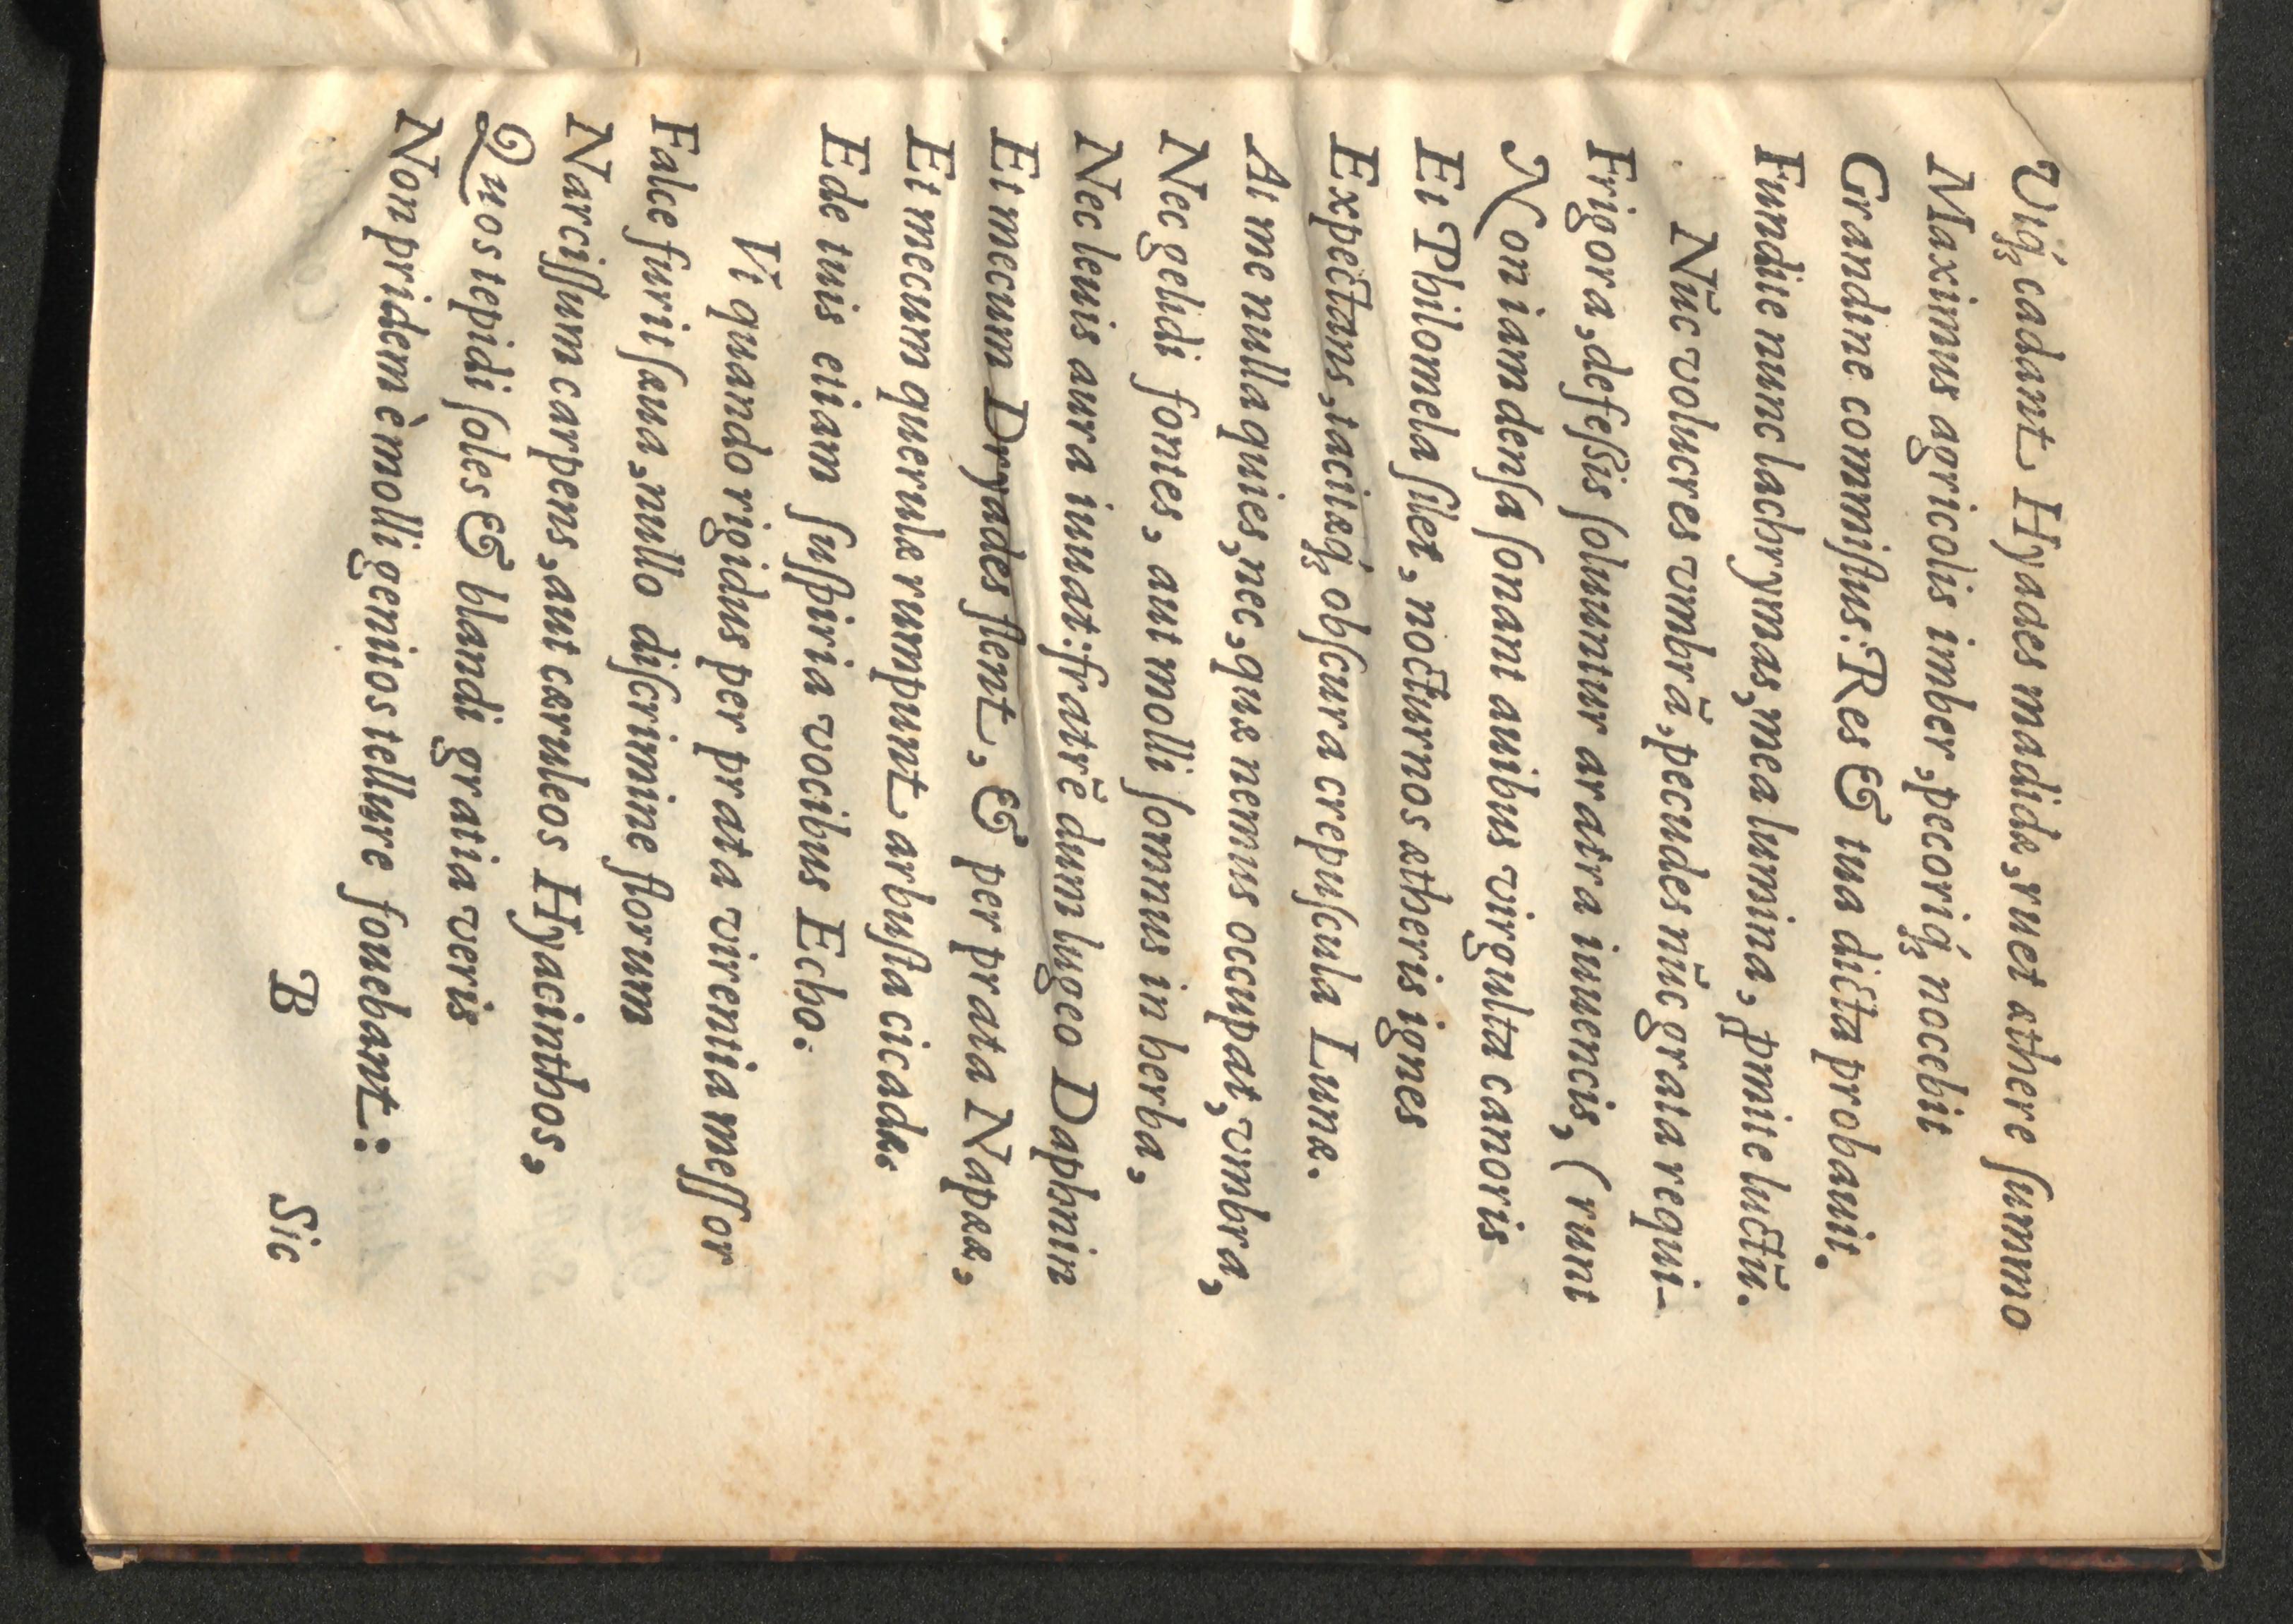 Vtq́ꝫ cadant Hyades madidæ, ruet æthere ſummo
Maximus agricolis imber, pecoriq́ꝫ nocebit
Grandine commiſtus: Res & tua dicta probauit.
Fundite nunc lachrymas, mea lumina, ꝓmite luctū.
Nūc volucres vmbrā, pecudes nūc grata requi-
Frigora, defeſsis ſoluuntur aratra iuuencis, (runt
Non iam denſa ſonant auibus virgulta canoris
Et Philomela ſilet, nocturnos ætheris ignes
Expectans, tacitæq́ꝫ obſcura crepuſcula Lunæ.
At me nulla quies, nec, quæ nemus occupat, vmbra,
Nec gelidi fontes, aut molli ſomnus in herba,
Nec lenis aura iuuat: fratrē dum lugeo Daphnin
Et mecum Dryades flent, & per prata Napææ,
Et mecum querulæ rumpunt arbuſta cicadæ.
Ede tuis etiam ſuſpiria vocibus Echo.
Vt quando rigidus per prata virentia meſſor
Falce furit ſæua, nullo diſcrimine florum
Narciſſum carpens, aut cæruleos Hyacinthos,
Quos tepidi ſoles & blandi gratia veris
Non pridem è molli genitos tellure fouebant:
B Sic